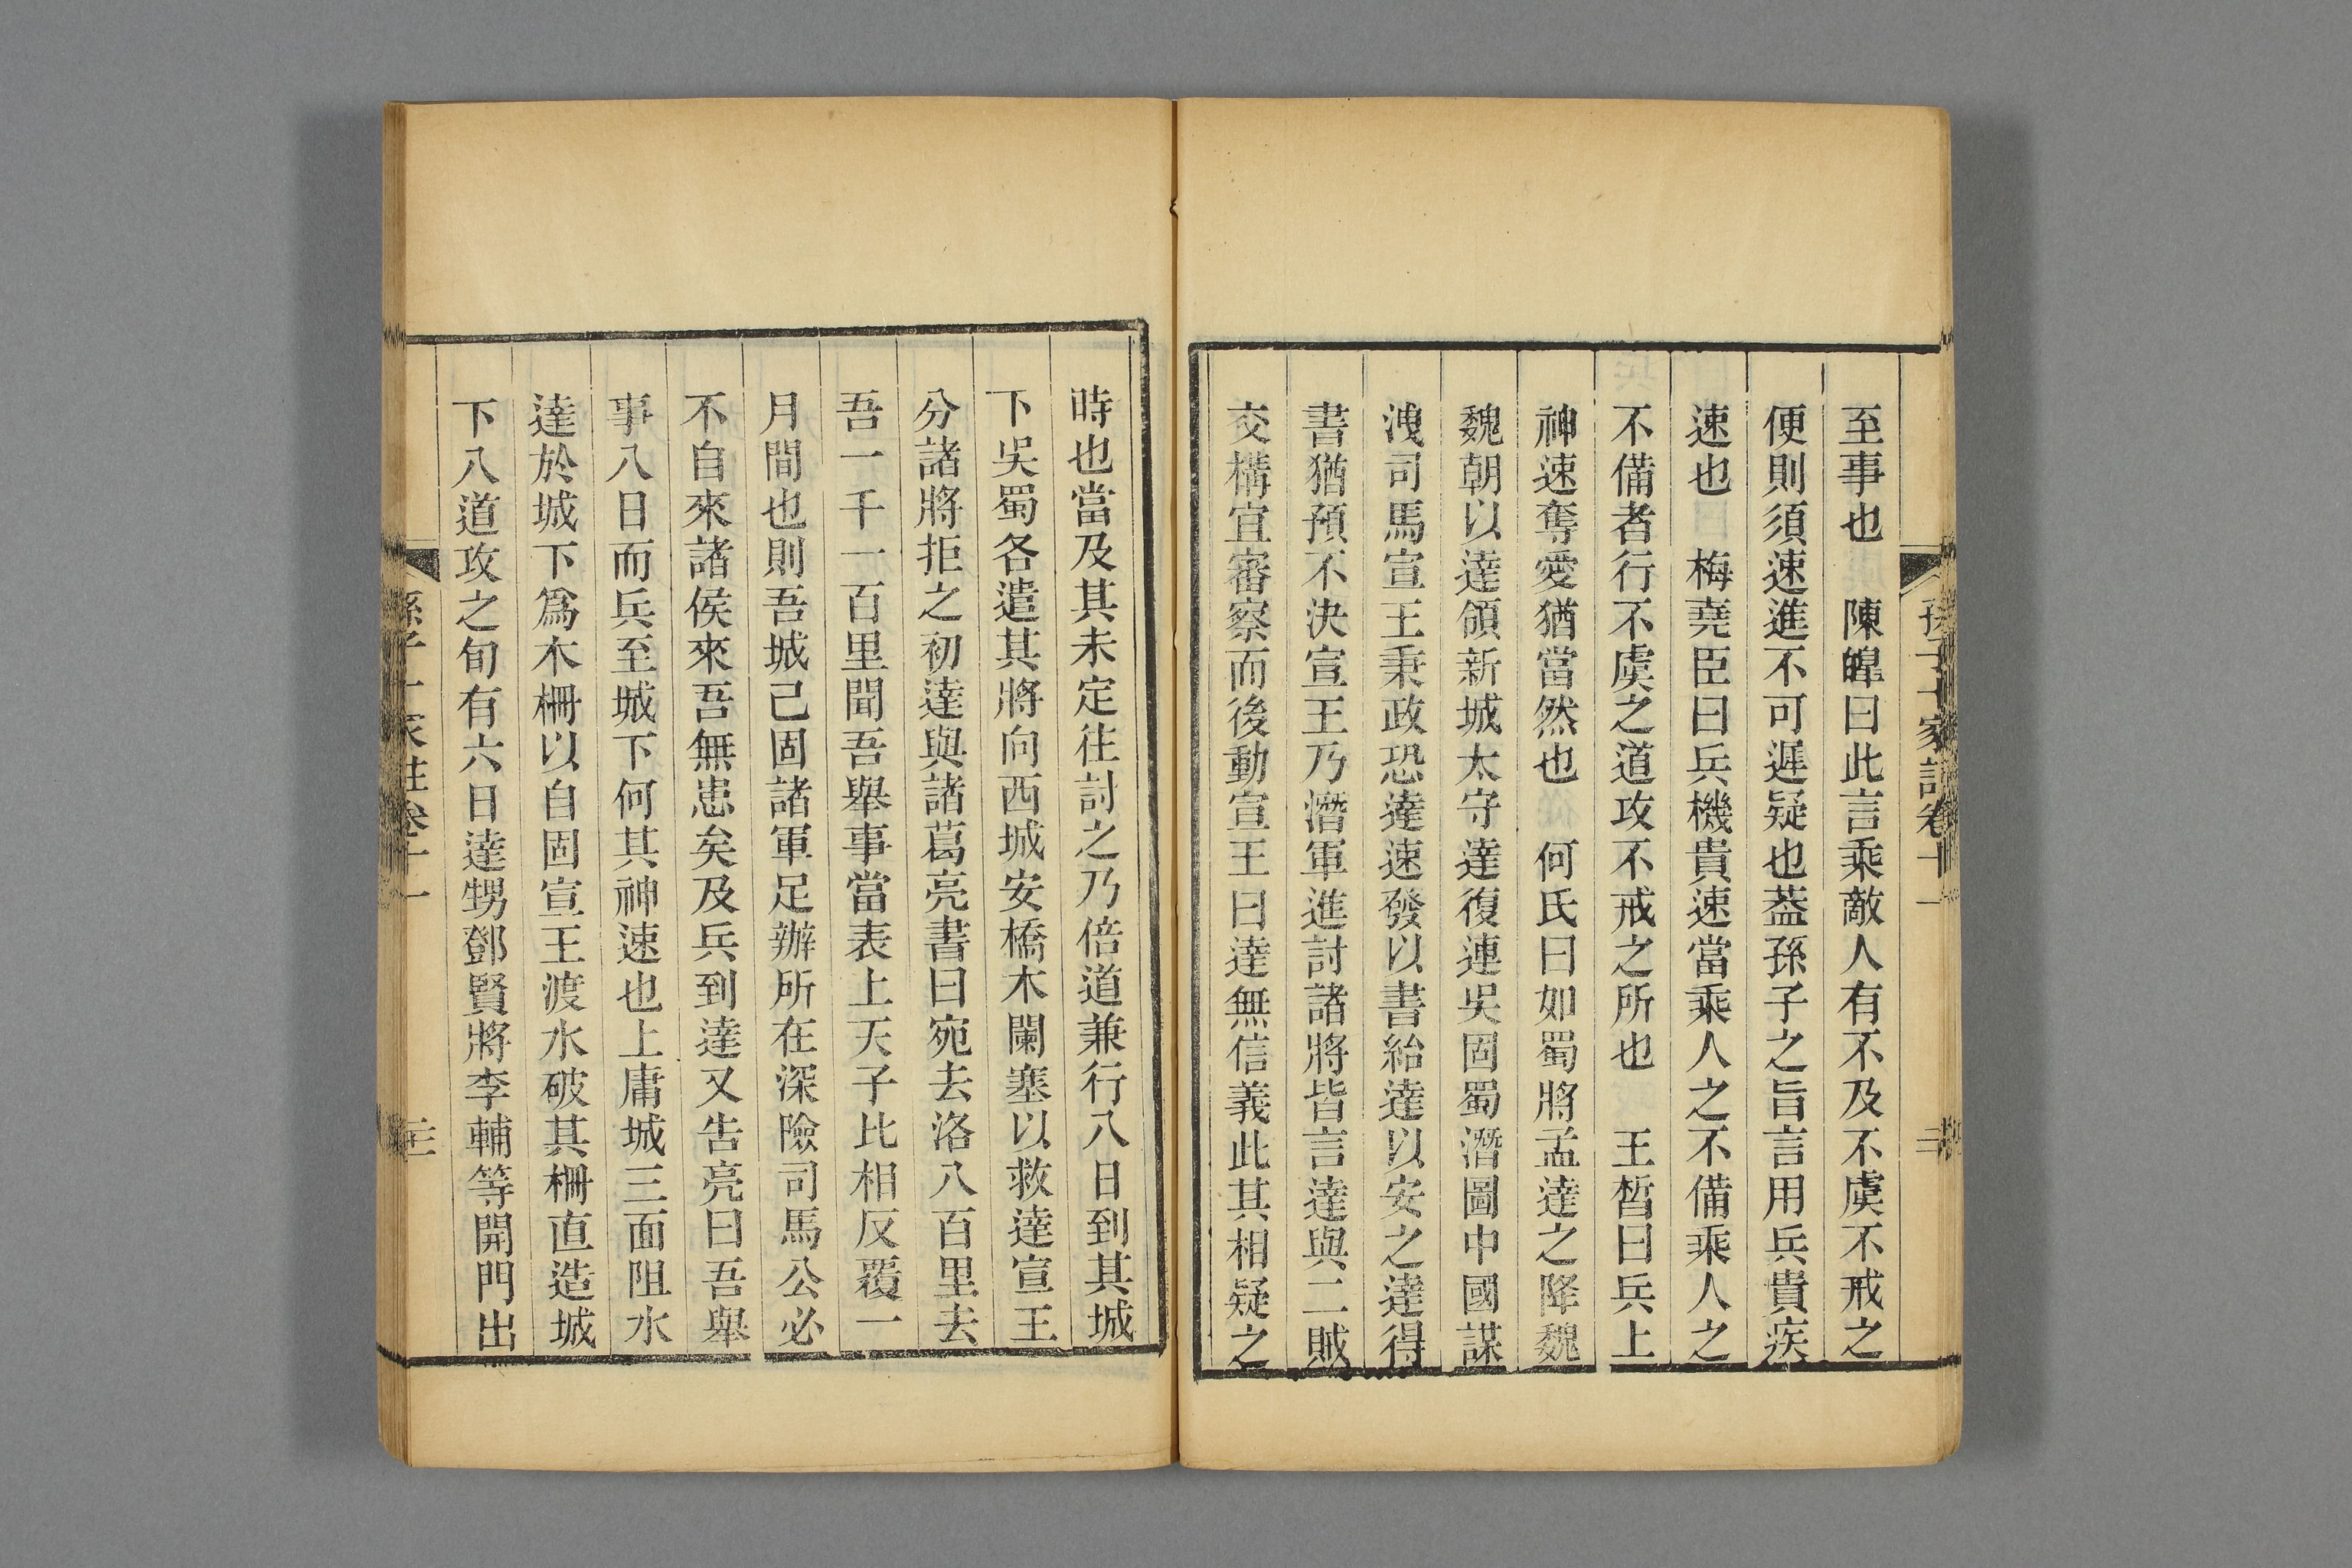 至事也　陳皥曰此言乘敵人有不及不虞不戒之
便則須速進不可遲疑也葢孫子之旨言用兵貴疾
速也　梅堯臣曰兵機貴速當乘人之不備乘人之
不備者行不虞之道攻不戒之所也　王晳曰兵上
神速奪愛猶當然也　何氏曰如蜀將孟達之降魏
魏朝以達領新城太守達復連吳固蜀潛圖中國謀
洩司馬宣王秉政恐達速發以書紿達以安之達得
書猶預不決宣王乃潛軍進討諸將皆言達與二賊
交構宜審察而後動宣王曰達無信義此其相疑之
時也當及其未定往討之乃倍道兼行八日到其城
下吳蜀各遣其將向西城安橋木闌塞以救達宣王
分諸將拒之初達與諸葛亮書曰宛去洛八百里去
吾一千一百里聞吾舉事當表上天子比相反覆一
月間也則吾城已固諸軍足辦所在深險司馬公必
不自來諸侯來吾無患矣及兵到達又告亮曰吾舉
事八日而兵至城下何其神速也上庸城三面阻水
達於城下爲木柵以自固宣王渡水破其柵直造城
下八道攻之旬有六日達甥鄧賢將李輔等開門出
孫子十家註卷十一